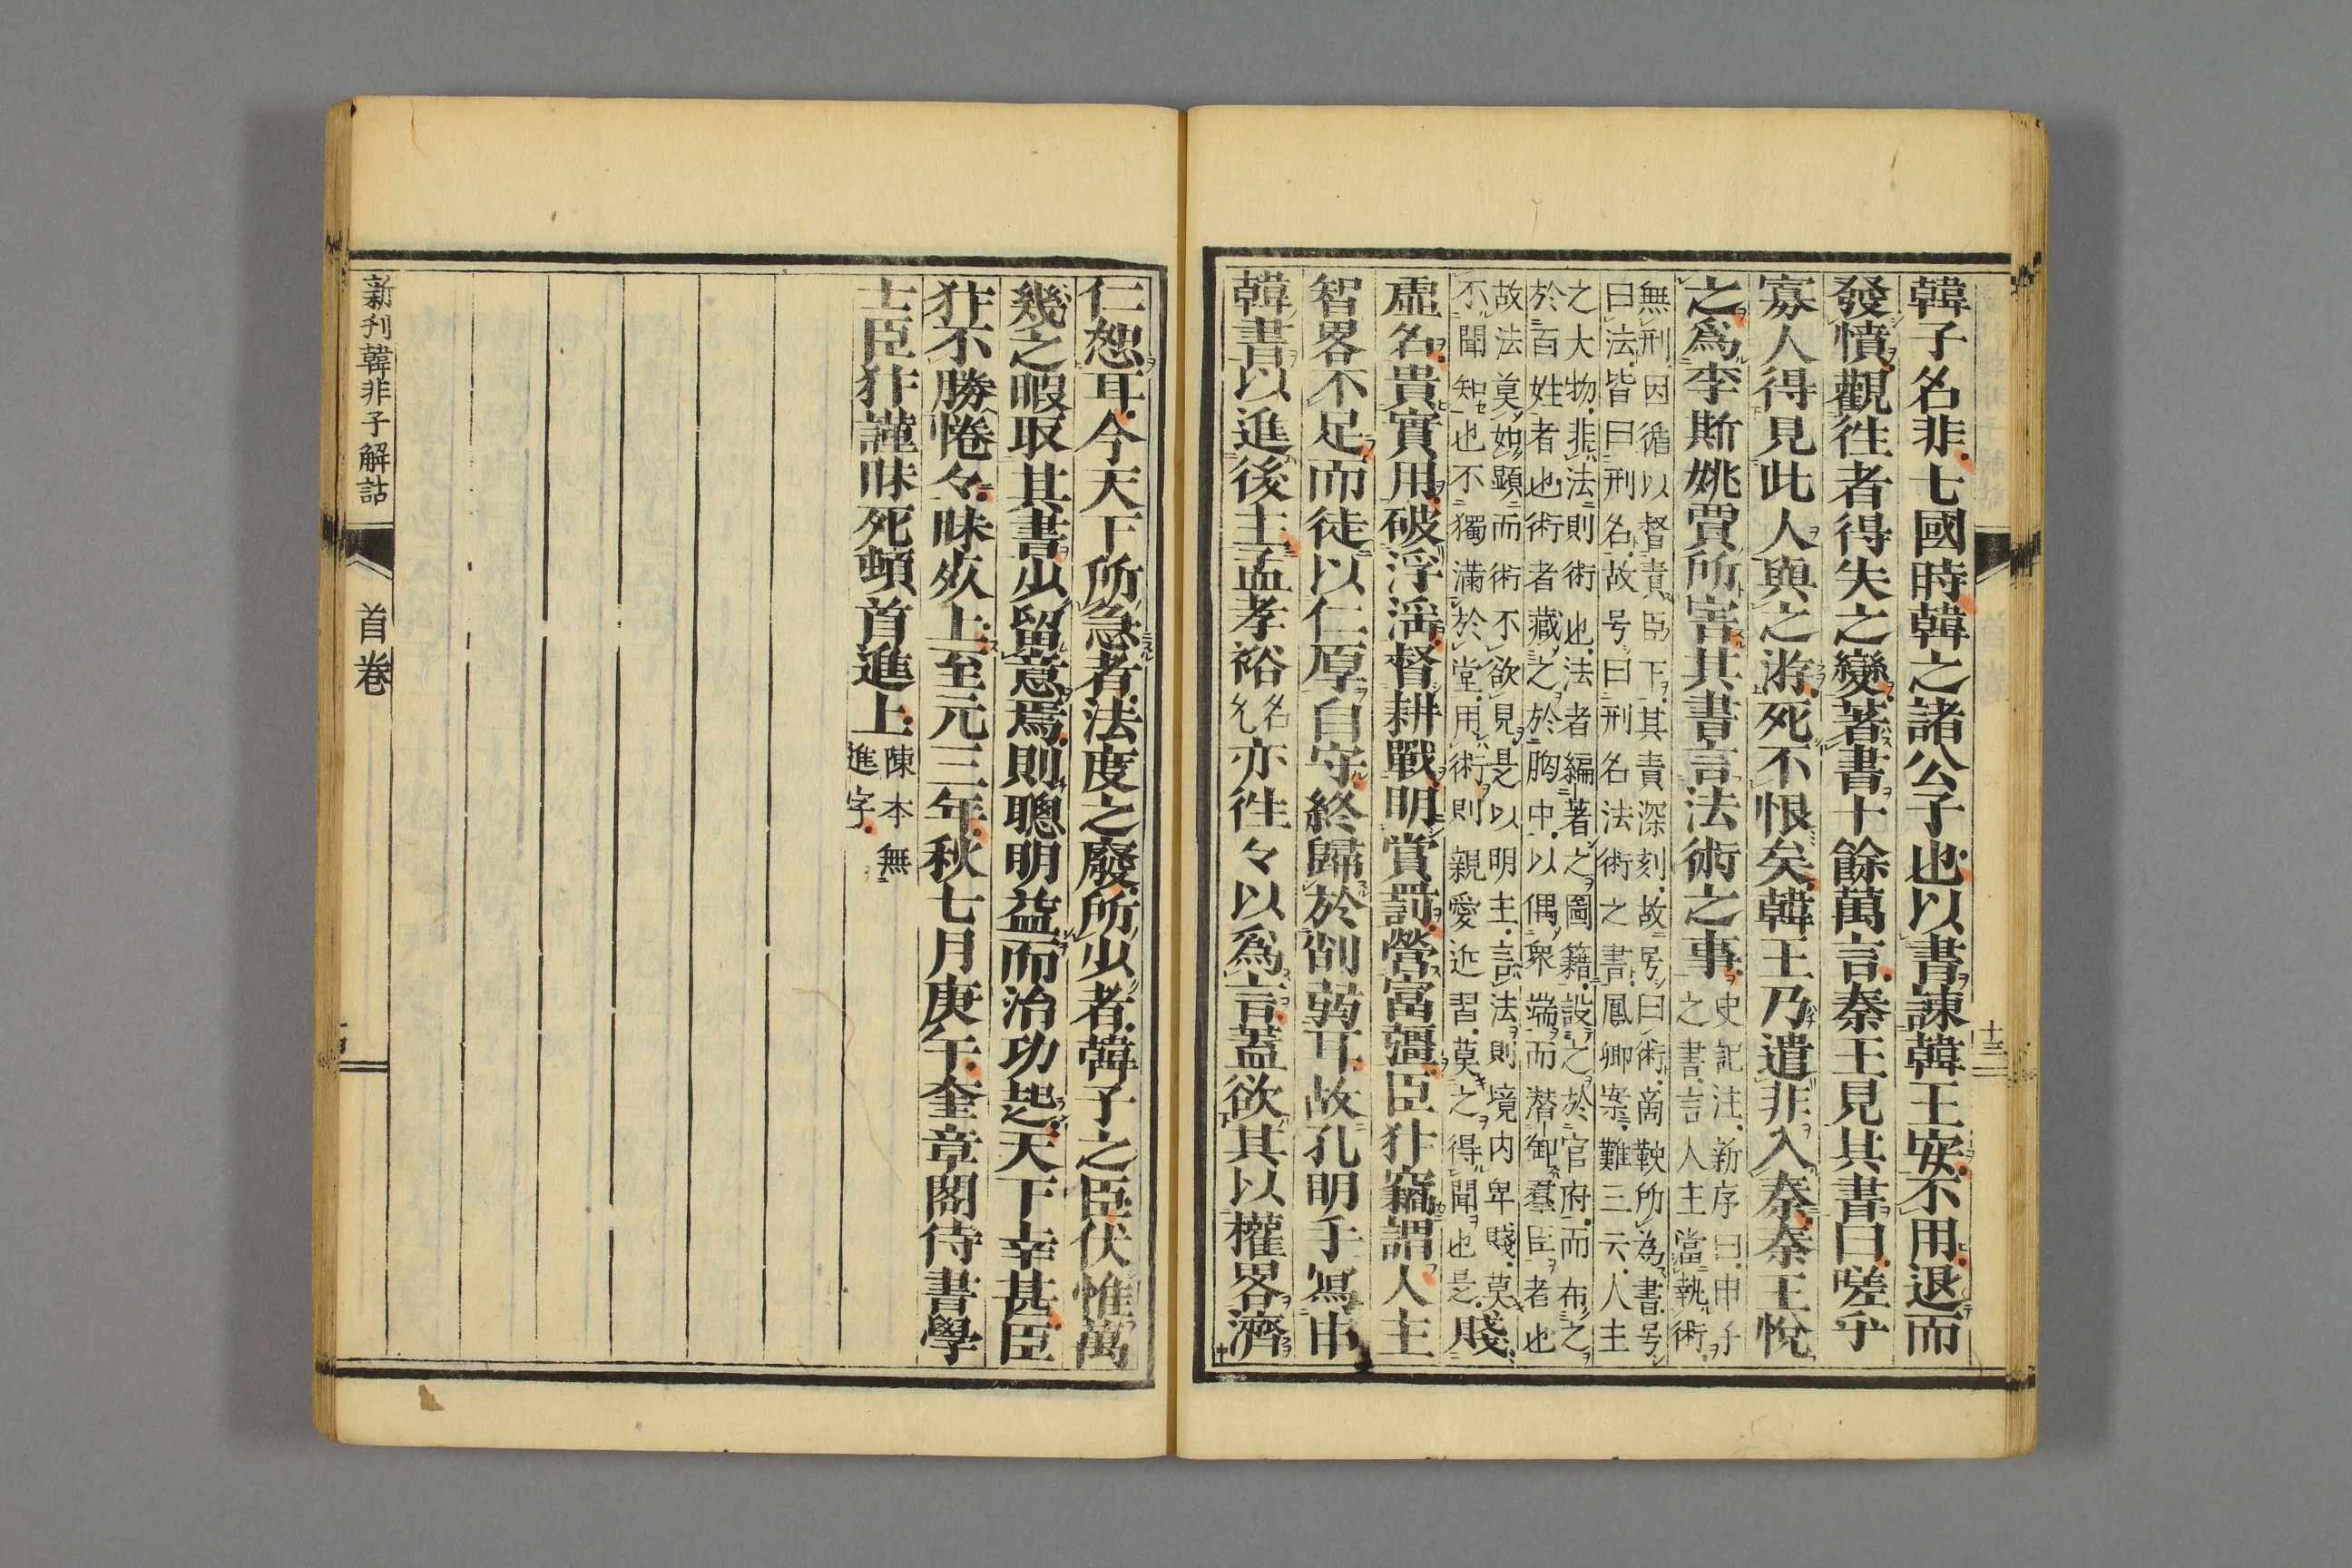 韓子名非七國時韓之諸公子也以書諫韓王安不用退而
發憤觀徃者得失之變著書十餘萬言秦王見其書曰嗟乎
寡人得見此人與之游死不恨矣韓王乃遣非入秦秦王悅
之爲李斯姚賈所害其書言法術之事
史記注新序曰申子
之書言人主當執術
無刑因循以督責臣下其責深刻故号曰術商鞅所為書号
曰法皆曰刑名故号曰刑名法術之書鳳卿案難三云人主
之大物非法則術也法者編著之圖籍設之於官府而布之
於百姓者也術者藏之於胸中以偶衆端而潜御羣臣者也
故法莫如顯而術不欲見是以明主言法則境内卑賤莫
不聞知也不獨滿於堂用術則親愛近習莫之得聞也是賤
虛名貴實用破浮淫督耕戰明賞罰營富彊臣犿竊謂人主
智畧不足而徒以仁厚自守終歸於削弱耳故孔明手寫申
韓書以進後主孟孝裕
名
允
亦徃々以爲言蓋欲其以權畧濟
十三
仁恕耳今天下所急者法度之廢所少者韓子之臣伏惟萬
幾之暇取其書少留意焉則聰明益而治功起天下幸甚臣
犿不勝惓々昧死上至元三年秋七月庚午奎章閣侍書學
士臣犿謹昧死頓首進上
陳本無
進字
新刊韓非子解詁
首卷